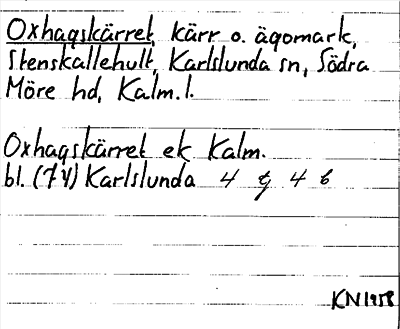 Oxhagskärret, kärr o. ägomark,
Stenskallehult, Karlslunda sn, Södra
Möre hd, Kalm. l.
Oxhagskärret ek Kalm.
bl. (74) Karlslunda 4 g 4 b
KN 1958